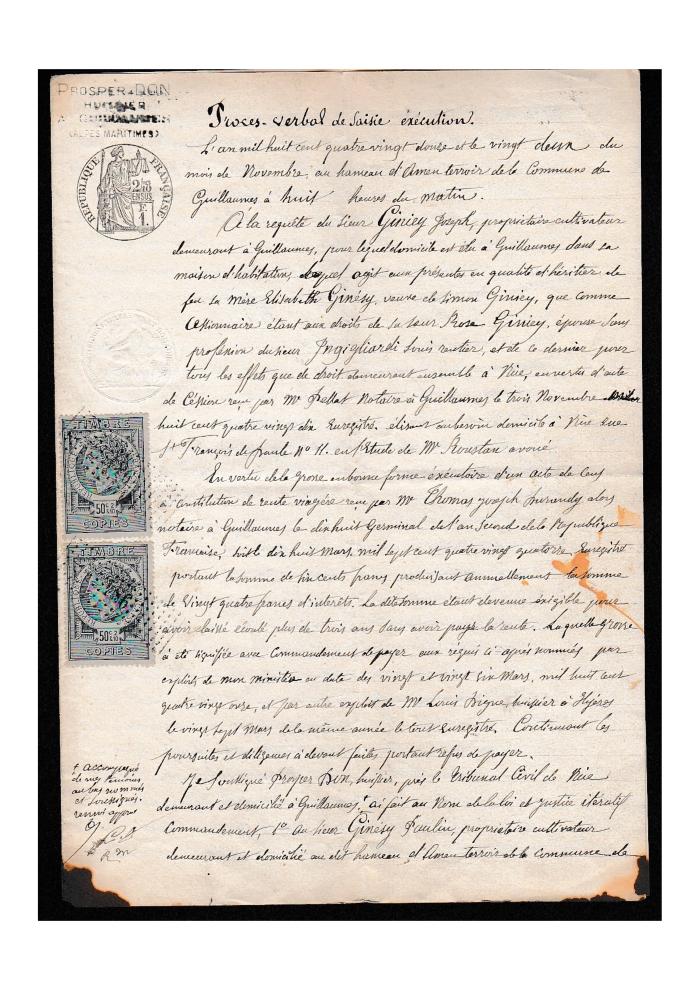 PROSPER DON
HUISSIER
A GUILLAUMES
(ALPES MARITIMES)
RÉPUBLIQUE FRANÇAISE
2/10
EN SUS
F
1
Procès-verbal de saisie exécution.
L'an mil huit cent quatre vingt douze et le vingt deux du
mois de Novembre, au hameau d'Amen terroir de la Commune de
Guillaumes à huit heures du matin.
A la requête du sieur Giniéy Joseph, propriétaire cultivateur
demeurant à Guillaumes, pour lequel domicile est élu à Guillaumes dans sa
maison d'habitation, lequel agit aux présentes en qualité d'héritier de
feu sa mère Elisabeth Ginésy, veuve de Simon Giniéy, que comme
cessionnaire étant aux droits de sa sœur Rose Giniéy, épouse sans
profession du sieur Ingigliardi Louis rentier, et de ce dernier pour
tous les effets que de droit demeurant ensemble à Nice, en vertu d'acte
de Cession reçu par Mr Pellat Notaire à Guillaumes le trois Novembre
huit cent quatre vingt dix Enregistré, élisant au besoin domicile à Nice rue
St François de paule No 11. en l'Etude de Mr Roustan avoué
En vertu de la Grosse en bonne forme éxécutoire d'un acte de
à constitution de rente viagère reçu par Mr Thomas Joseph Durandy alors
notaire à Guillaumes le dix huit Germinal de l'an Second de la République
Française, soit le dix huit Mars, mil sept cent quatre vingt quatorze, Enregistré
portant la somme de Six cents francs produisant annuellement la somme
de Vingt quatre francs d'intérêts. La dite somme étant devenue éxigible pour
avoir laissé écoulé plus de trois ans sans avoir payé la rente. La quelle Grosse
à été signifiée avec Commandement de payer aux requis ci après nommés par
exploits de mon ministère en date des vingt et vingt six Mars, mil huit cent
quatre vingt onze, et par autre exploit de Mr Louis Bigne, huissier à Hyères
le vingt sept Mars de la même année le tout Enregistré. Continuant les
poursuites et diligences ci devant faites portant refus de payer.
Je soussigné Prosper Don, huissier, près le Tribunal Civil de Nice
demeurant et domicilié à Guillaumes,+ ai fait au Nom de la loi et Justice itératif
Commandement, 1o au sieur Ginésy Paulin, propriétaire cultivateur
demeurant et domicilié au dit hameau d'Amen terroir de la commune de
TIMBRE
50c 2/10
COPIES
TIMBRE
50c 2/10
COPIES
+ accompagné
de mes témoins
au bas nommés
et soussignés.
renvoi approuvé